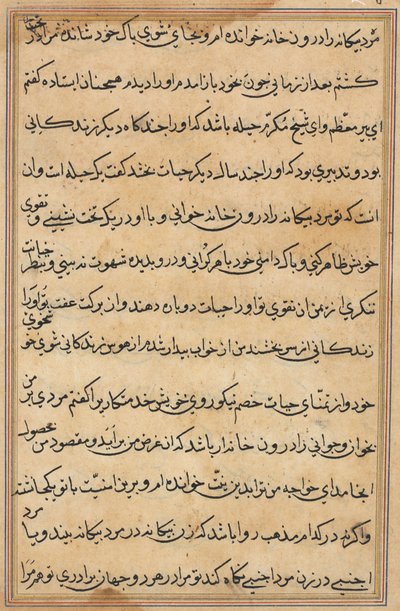 مرد بیکانه را درون خانه خوانده ام و بجای شوی باک خود شانده مرا در خواب
کشتم بعد از زمانی جون خود باز امدم او را دیدم همچنان ایستاده کفتم
ای پیر معظم وای شیخ مکرم حیله باشد که او را جند کاه دیکر زندکانی
بود و تدبیری بود که او را جند سال دیکر حیات بخشد کفت یک حیله است وان
انست که تو مرد بیکانه را درون خانه خوانی و با او در یک تخت نشینی و تقوی
خویش ظاهر کنی و باک دامنی خود باهر کردانی و در وی بدیده شهوت نه بینی و بنظر خیانت
ننکری از یمن ان تقوی تو او را حیات دوباره دهند و از برکت عفت تو او را
زندکانی از سر بخشند من از خواب بیدار شدم از هوس زندکانی شوی خو
خود و از تمنای حیات خصم نیکوروی خویش خدمتکار را کفتم مردی بر من
بخوان و جوانی را درون خانه ار باشد که ان غرض من براید و مقصود من بحصول
انجامد ای خواجه من ترا بدین نیت خوانده ام و برین امنیت با تو یکجا شسته
واکر نه در کدام مذهب روا باشد که زن بیکانه در مرد بیکانه بیند و یا مرد
اجنبی در زن مرد اجنبی نکاه کند تو مرا در هر دو جهان برادری تو هم مرا